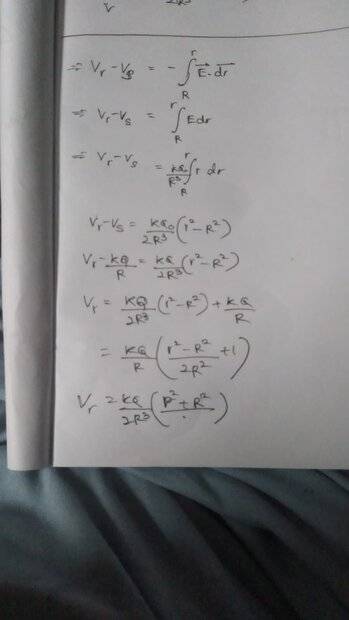 ⇒ Vr - Vs = - ∫_R^r E⃗. dr⃗
⇒ Vr - Vs = ∫_R^r E dr
⇒ Vr - Vs = KQ/R³ ∫_R^r r dr
Vr - Vs = KQ/2R³ (r² - R²)
Vr - KQ/R = KQ/2R³ (r² - R²)
Vr = KQ/2R³ (r² - R²) + KQ/R
= KQ/R (r² - R²/2R² + 1)
Vr = KQ/2R³ (r² + R²)